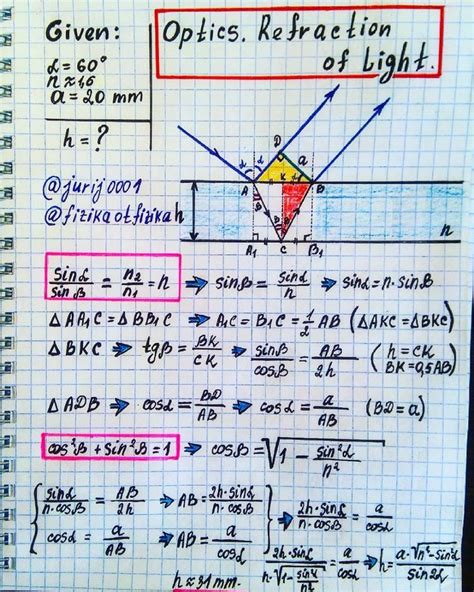 Given:
α = 60°
n ≈ 1,6
a = 20 mm
h = ?
Optics. Refraction
of Light.
@jurij0001
@fizikaotfizika
D
α α a
A K B
h
β β
n
A₁ C B₁
sinα/sinβ = n₂/n₁ = n ⇒ sinβ = sinα/n ⇒ sinα = n·sinβ
ΔAA₁C = ΔBB₁C ⇒ A₁C = B₁C = 1/2 AB (ΔAKC = ΔBKC)
ΔBKC ⇒ tgβ = BK/CK ⇒ sinβ/cosβ = AB/2h (h = CK
BK = 0,5AB)
ΔADB ⇒ cosα = BD/AB ⇒ cosα = a/AB (BD = a)
cos²β + sin²β = 1 ⇒ cosβ = √(1 − sin²α/n²)
{ sinα/n·cosβ = AB/2h ⇒ AB = 2h·sinα/n·cosβ } ⇒ 2h·sinα/n·cosβ = a/cosα
cosα = a/AB ⇒ AB = a/cosα
2h·sinα/n·√(1 − sin²α/n²) = a/cosα ⇒ h = a·√(n² − sin²α)/sin2α
h ≈ 31 mm.